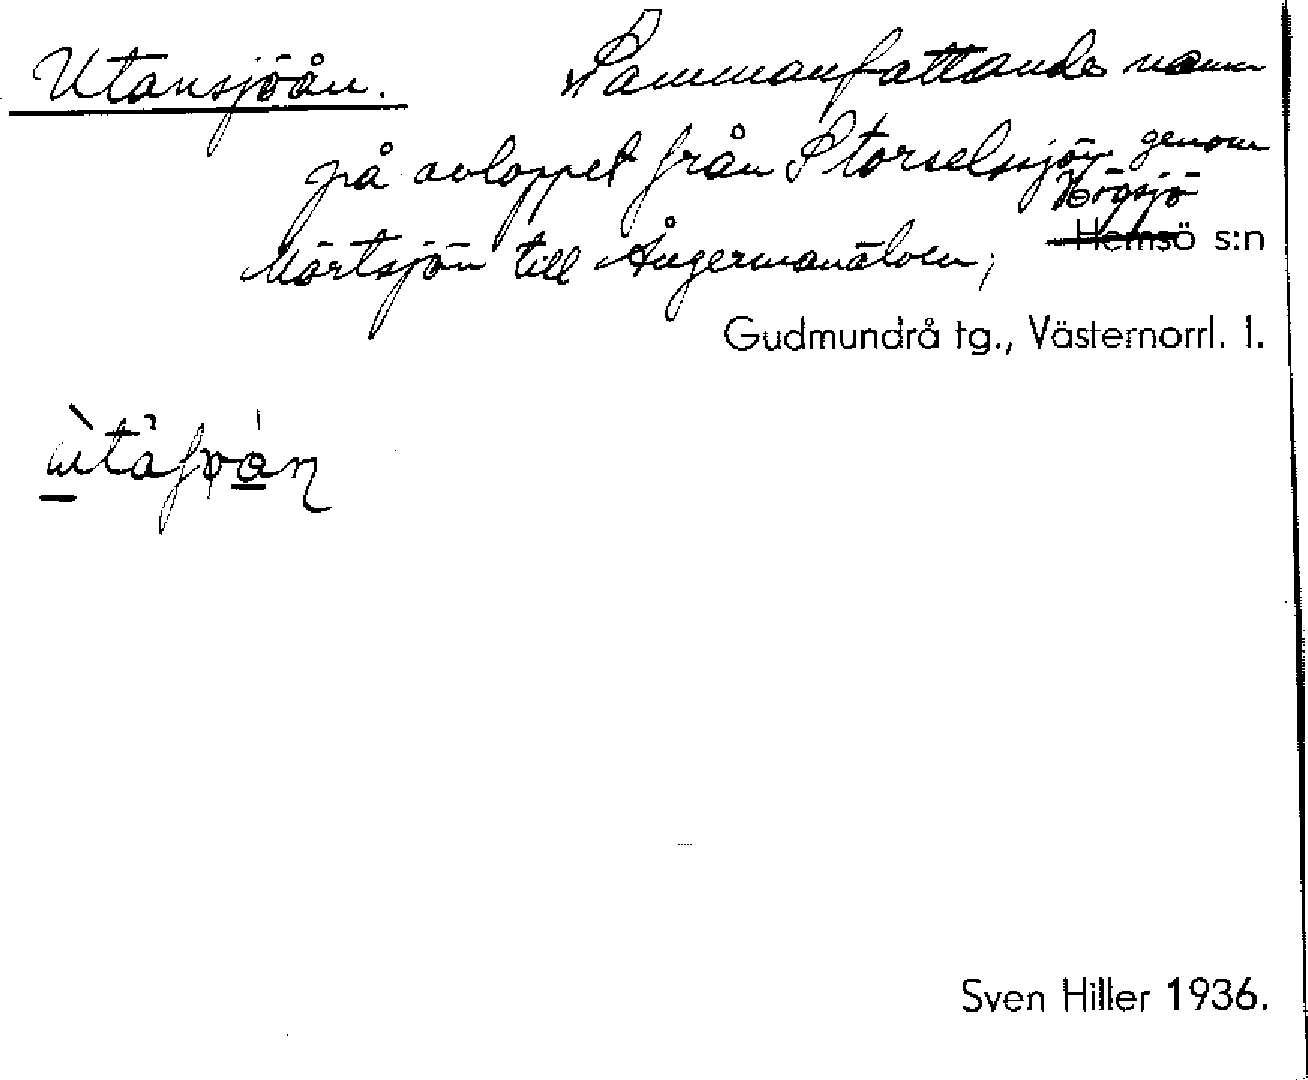 Utansjöån. Sammanfattande namn
på avloppet från Storselssjön genom
Högsjö
Mörtsjön till Ångermanälven, Hemsö s:n
Gudmundrå tg., Västernorrl. l.
Sven Hiller 1936.